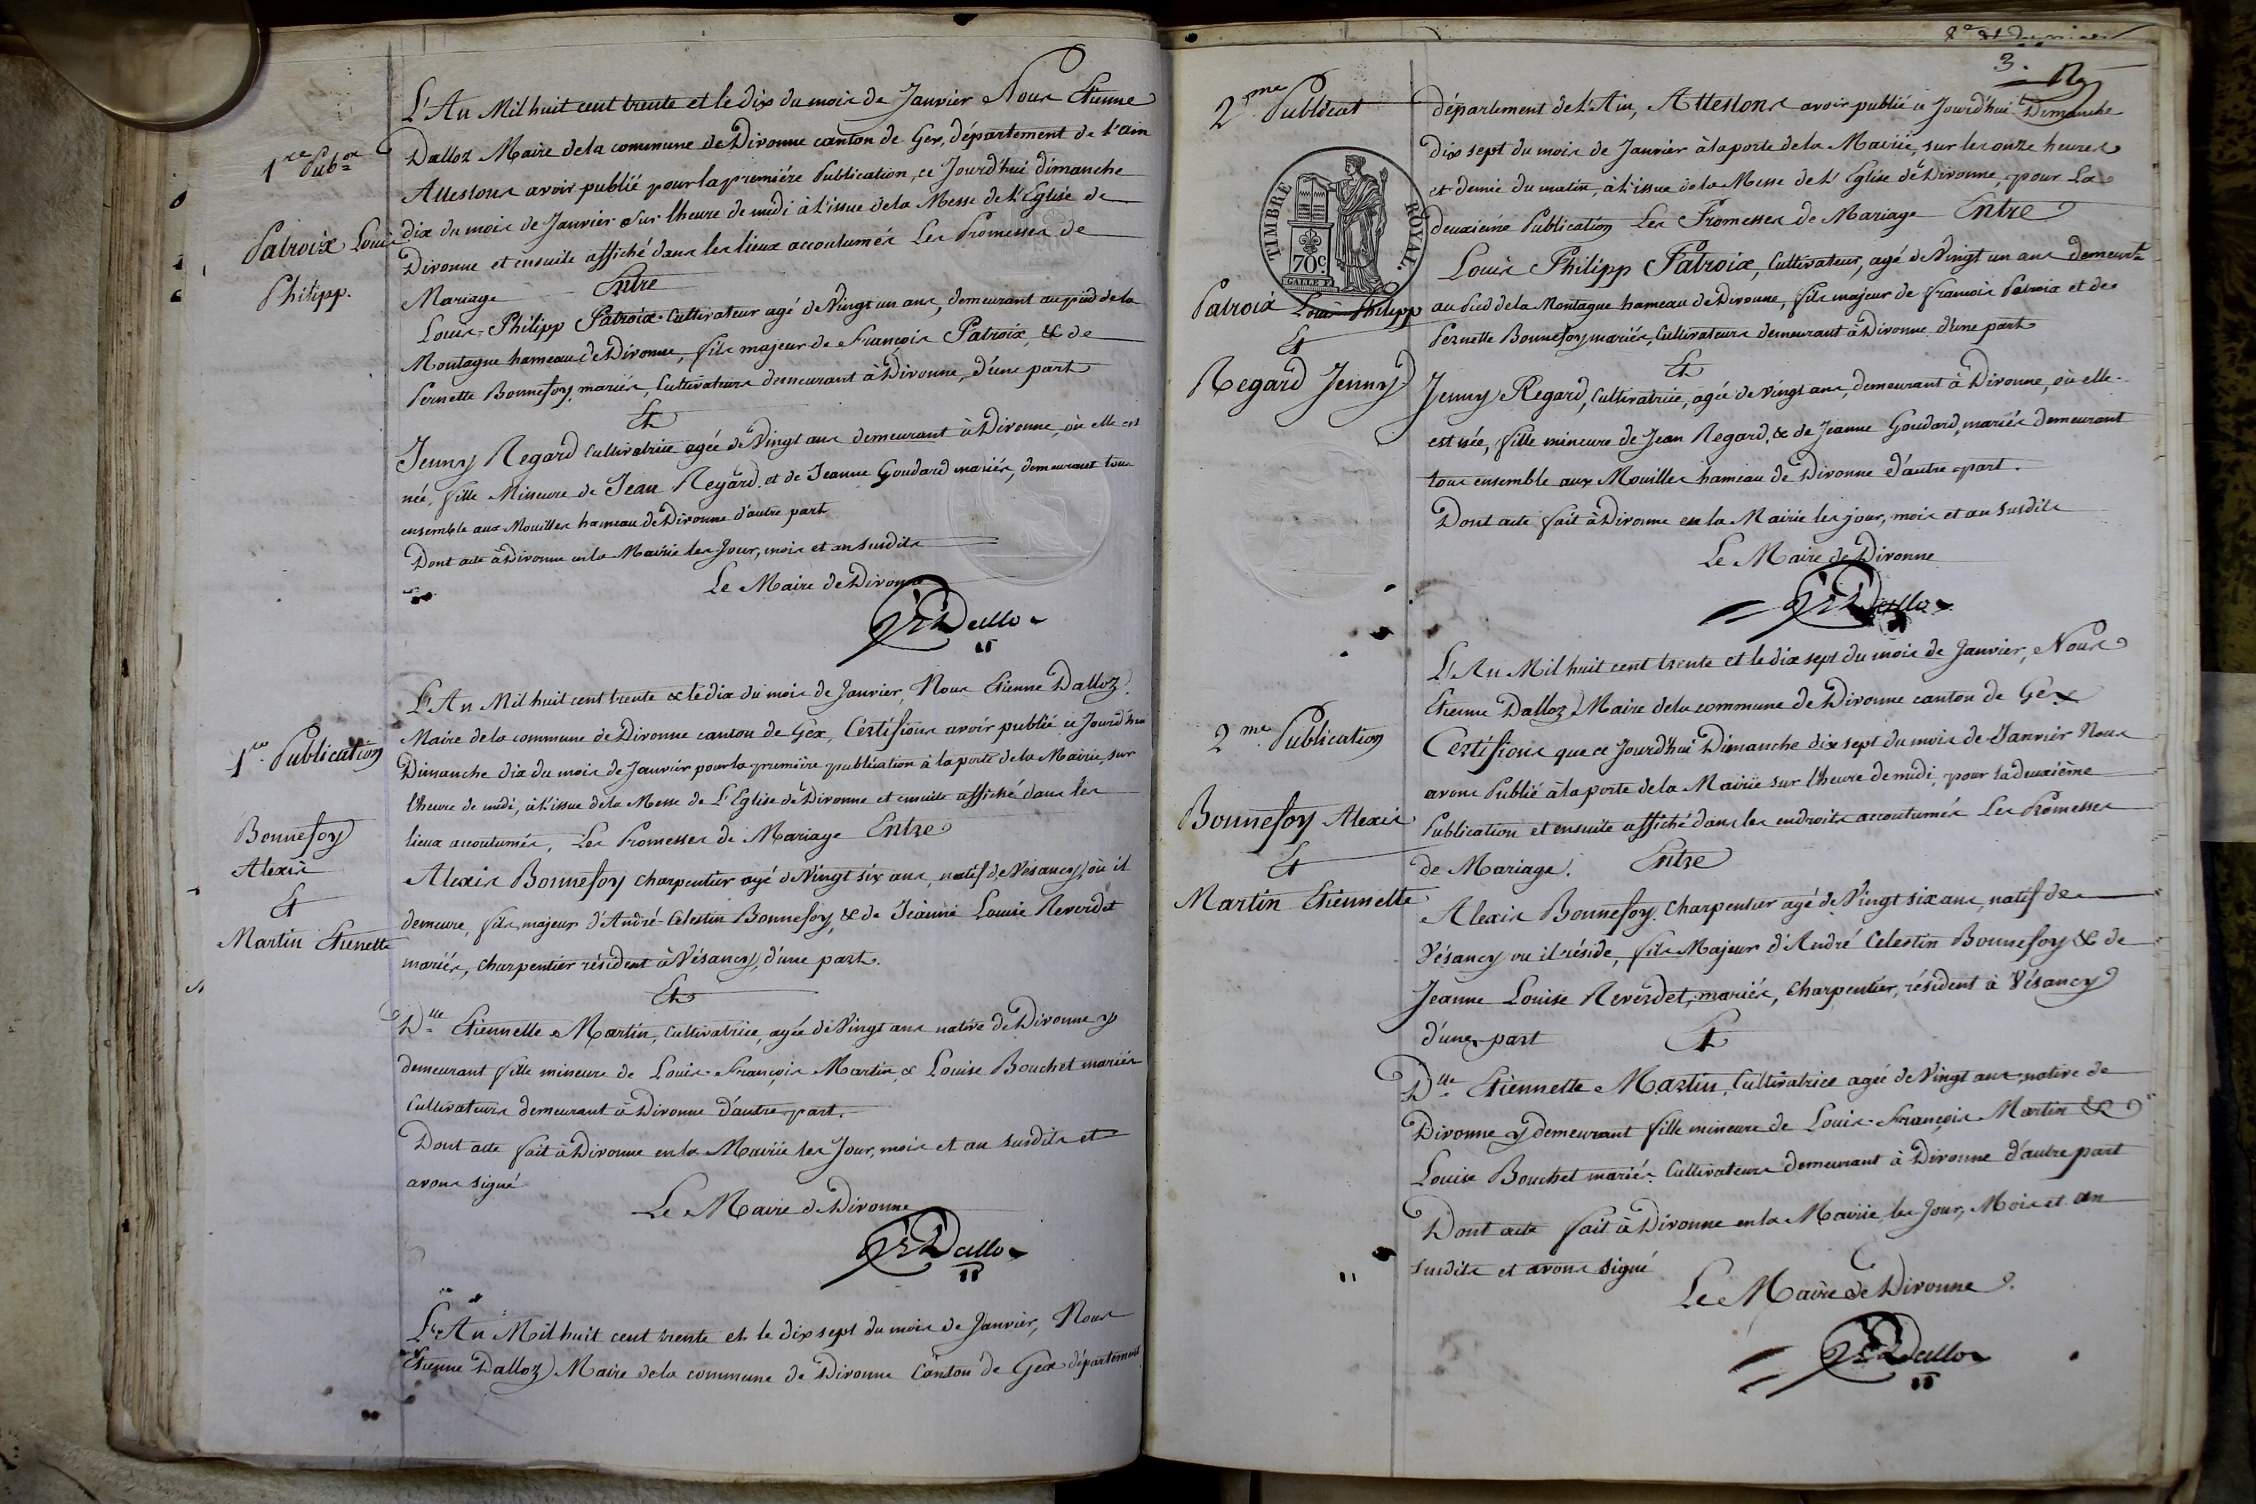 1re Pubon
Patroix Louis
Philipp.
L'An Mil huit cent trente et le dix du mois de Janvier Nous Etienne
Dalloz Maire de la commune de Divonne canton de Gex, département de l'ain
Attestons avoir publié pour la première Publication, ce Jourd'hui dimanche
dix du mois de Janvier sur l'heure de midi à l'issue de la Messe de L'Eglise de
Divonne et ensuite affiché dans les lieux accoutumés Les Promesses de
Mariage Entre
Louis-Philipp Patroix Cultivateur agé de Vingt un ans, demeurant au pied de la
Montagne hameau de Divonne, fils majeur de François Patroix, & de
Pernette Bonnefoy, mariés, Cultivateurs demeurant à Divonne, d'une part
Et
Jenny Regard Cultivatrice agée de Vingt ans demeurant à Divonne, où elle est
née, fille Mineure de Jean Regard, et de Jeanne Goudard mariés, demeurant tous
ensemble aux Mouilles hameau de Divonne d'autre part
Dont acte à Divonne en la Mairie les Jour, mois et an susdits
Le Maire de Divonne
Dalloz
1re Publication
Bonnefoy
Alexis
Et
Martin Etienette
L'An Mil huit cent trente & le dix du mois de Janvier, Nous Etienne Dalloz
Maire de la commune de Divonne canton de Gex, Certifions avoir publié ce Jourd'hui
Dimanche dix du mois de Janvier pour la première publication à la porte de la Mairie, sur
l'heure de midi, à l'issue de la Messe de L'Eglise de Divonne et ensuite affiché dans les
lieux accoutumés, Les Promesses de Mariage Entre
Alexis Bonnefoy charpentier agé de Vingt six ans, natif de Vésancy, où il
demeure, fils majeur d'André-Celestin Bonnefoy, & de Jeanne Louise Reverdet
mariés, charpentier résident à Vésancy, d'une part.
Et
Dlle Etiennette Martin, Cultivatrice, agée de Vingt ans native de Divonne y
demeurant fille mineure de Louis-François Martin & Louise Bouchet mariés
Cultivateurs demeurant à Divonne d'autre part.
Dont acte fait à Divonne en la Mairie les Jour, mois et an susdits et
avons signé
Le Maire de Divonne
Dalloz
L'An Mil huit cent trente et le dix sept du mois de Janvier, Nous
Etienne Dalloz Maire de la commune de Divonne Canton de Gex département
3.
2me Publicat
TIMBRE ROYAL.
70c
Patroix Louis Philipp
Et
Regard Jenny
département de L'Ain, Attestons avoir publié ce Jourd'hui Dimanche
dix sept du mois de Janvier à la porte de la Mairie, sur les onze heures
et demie du matin, à l'issue de la Messe de L'Eglise de Divonne, pour La
deuxième Publication Les Promesses de Mariage Entre
Louis Philipp Patroix, Cultivateur, agé de Vingt un ans demeurt
au Pied de la Montagne hameau de Divonne, fils majeur de François Patroix et de
Pernette Bonnefoy mariés, Cultivateurs demeurant à Divonne d'une part
Et
Jenny Regard, Cultivatrice, agée de vingt ans, demeurant à Divonne, où elle
est née, fille mineure de Jean Regard, & de Jeanne Goudard, mariés demeurant
tous ensemble aux Mouilles hameau de Divonne d'autre part.
Dont acte fait à Divonne en la Mairie les jour, mois et an susdits
Le Maire de Divonne
Dalloz
2me Publication
Bonnefoy Alexis
Et
Martin Etiennette
L'An Mil huit cent trente et le dix sept du mois de Janvier, Nous
Etienne Dalloz Maire de la commune de Divonne canton de Gex
Certifions que ce Jourd'hui Dimanche dix sept du mois de Janvier Nous
avons Publié à la porte de la Mairie sur l'heure de midi, pour la deuxième
Publication et ensuite affiché dans les endroits accoutumés Les Promesses
de Mariage. Entre
Alexis Bonnefoy. Charpentier agé de Vingt six ans, natif de
Vésancy ou il réside, fils Majeur d'André Celestin Bonnefoy & de
Jeanne Louise Reverdet, mariés, Charpentier, résident à Vésancy
d'une part Et
Dlle Etiennette Martin, Cultivatrice agée de Vingt ans, native de
Divonne y demeurant fille mineure de Louis-François Martin &
Louise Bouchet mariés Cultivateurs demeurant à Divonne d'autre part
Dont acte fait à Divonne en la Mairie, les Jour, Mois et an
susdits et avons signé
Le Maire de Divonne
Dalloz